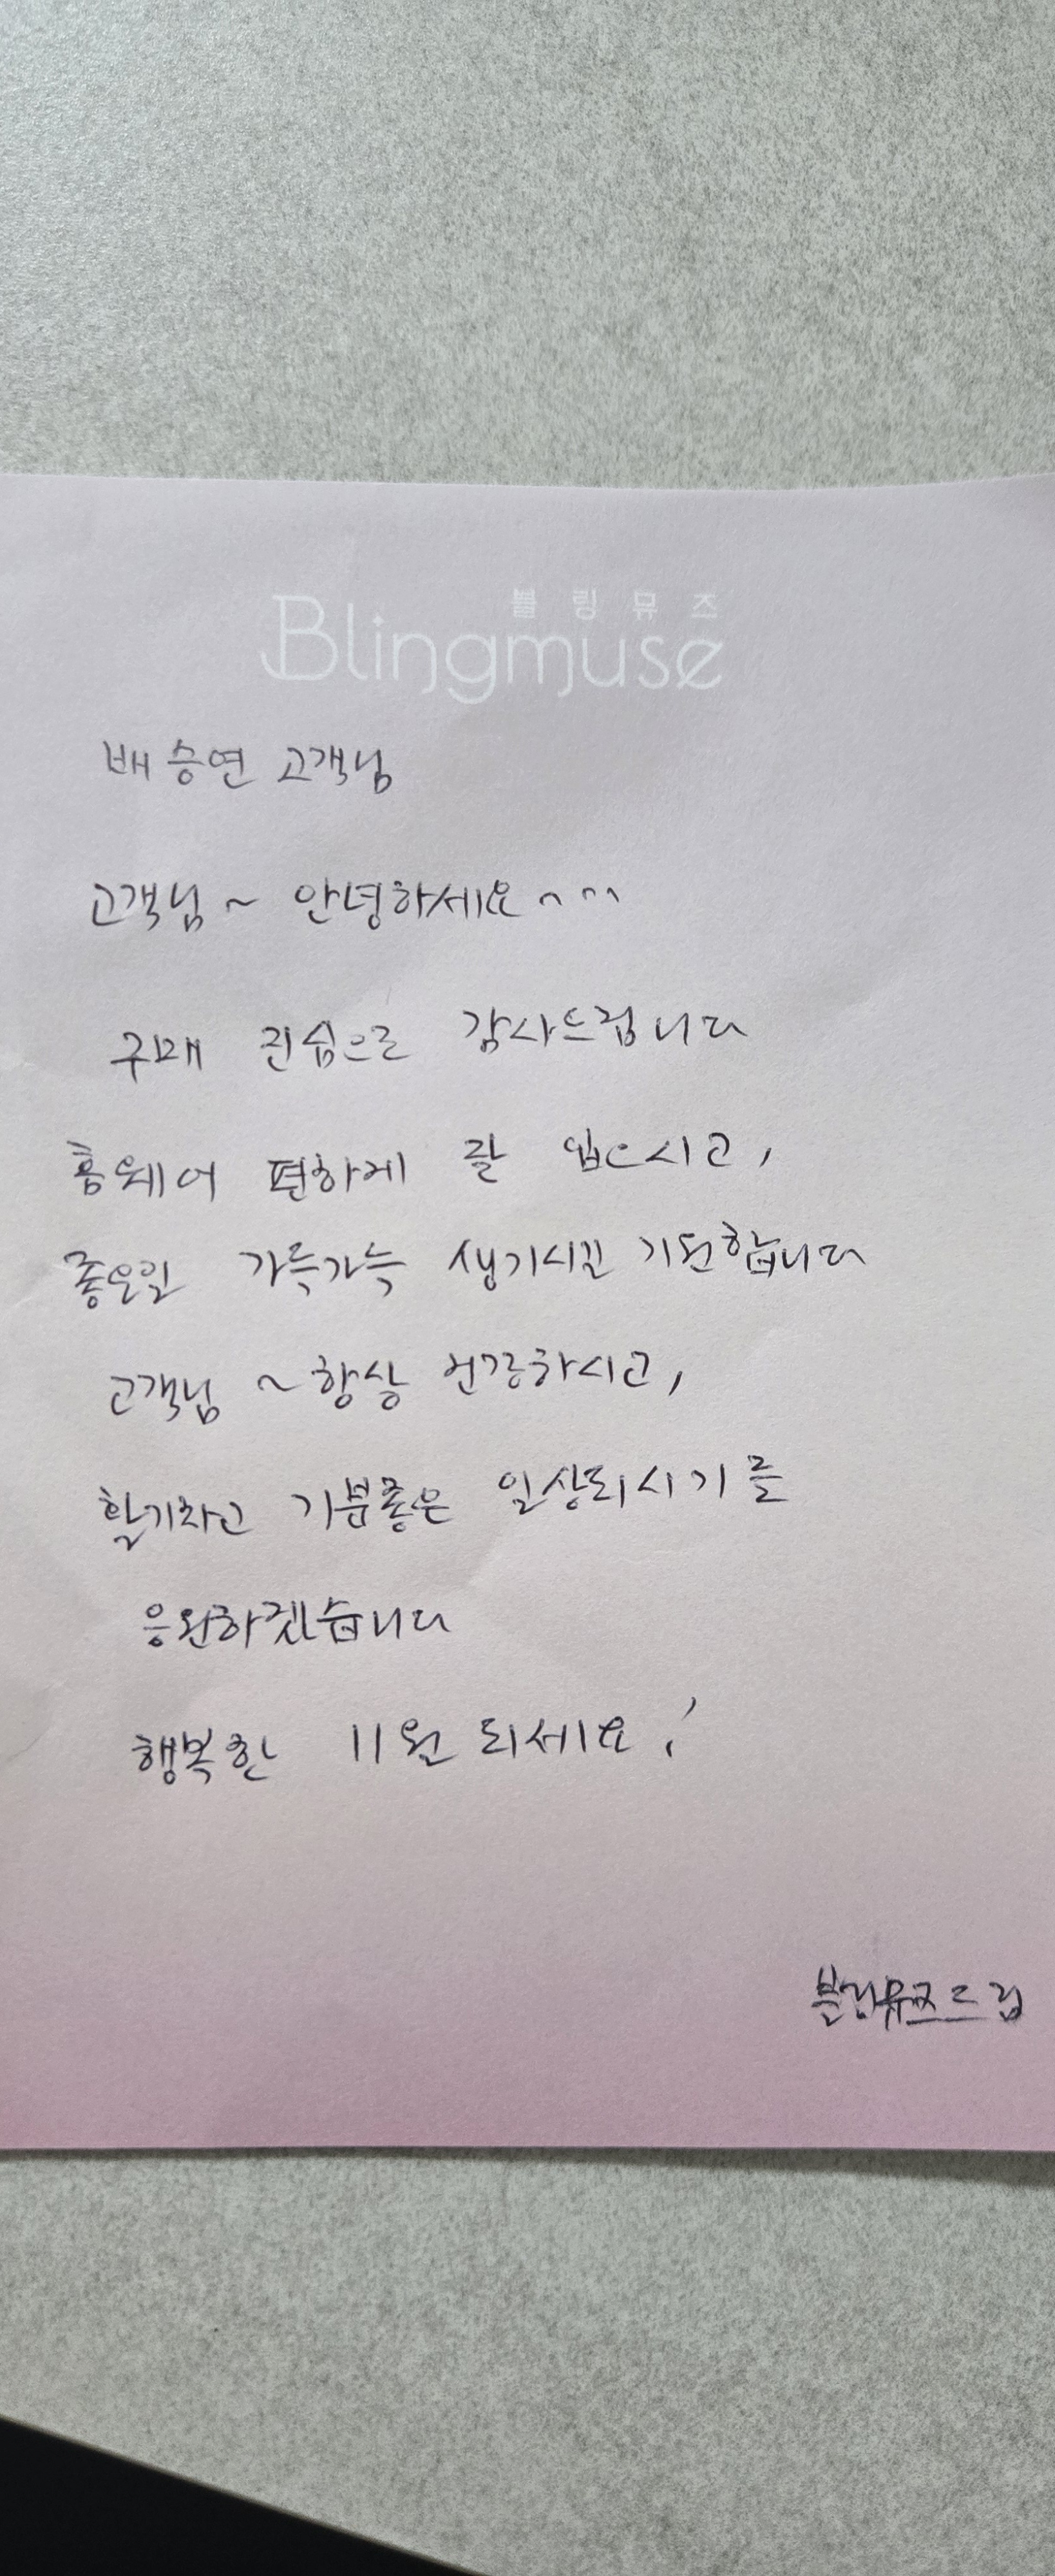 블링뮤즈
Blingmuse
배승연 고객님
고객님~ 안녕하세요^^^
구매 진심으로 감사드립니다
홈웨어 편하게 잘 입으시고,
좋은일 가득가득 생기시길 기원합니다
고객님 ~항상 건강하시고,
활기차고 기분좋은 일상되시기를
응원하겠습니다
행복한 11월 되세요!
블링뮤즈드림